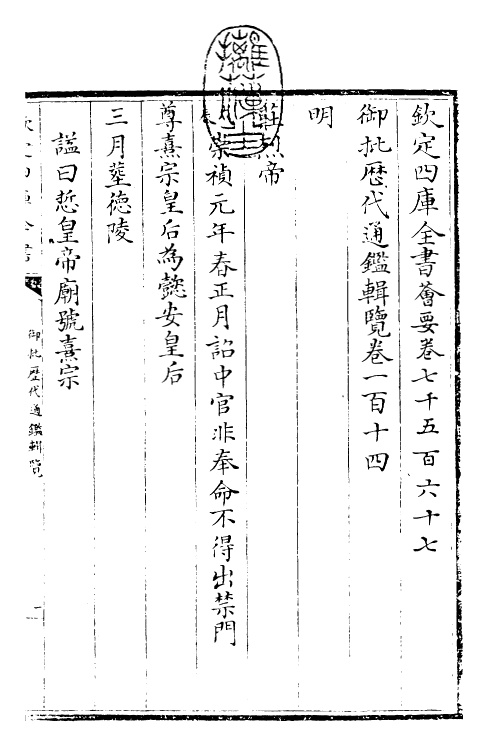 欽定四庫全書薈要卷七千五百六十七
御批歷代通鑑輯覽卷一百十四
明
莊烈帝
崇禎元年春正月詔中官非奉命不得出禁門
尊熹宗皇后為懿安皇后
三月塟德陵
諡曰悊皇帝廟號熹宗
御批歷代通鑑輯覽
一